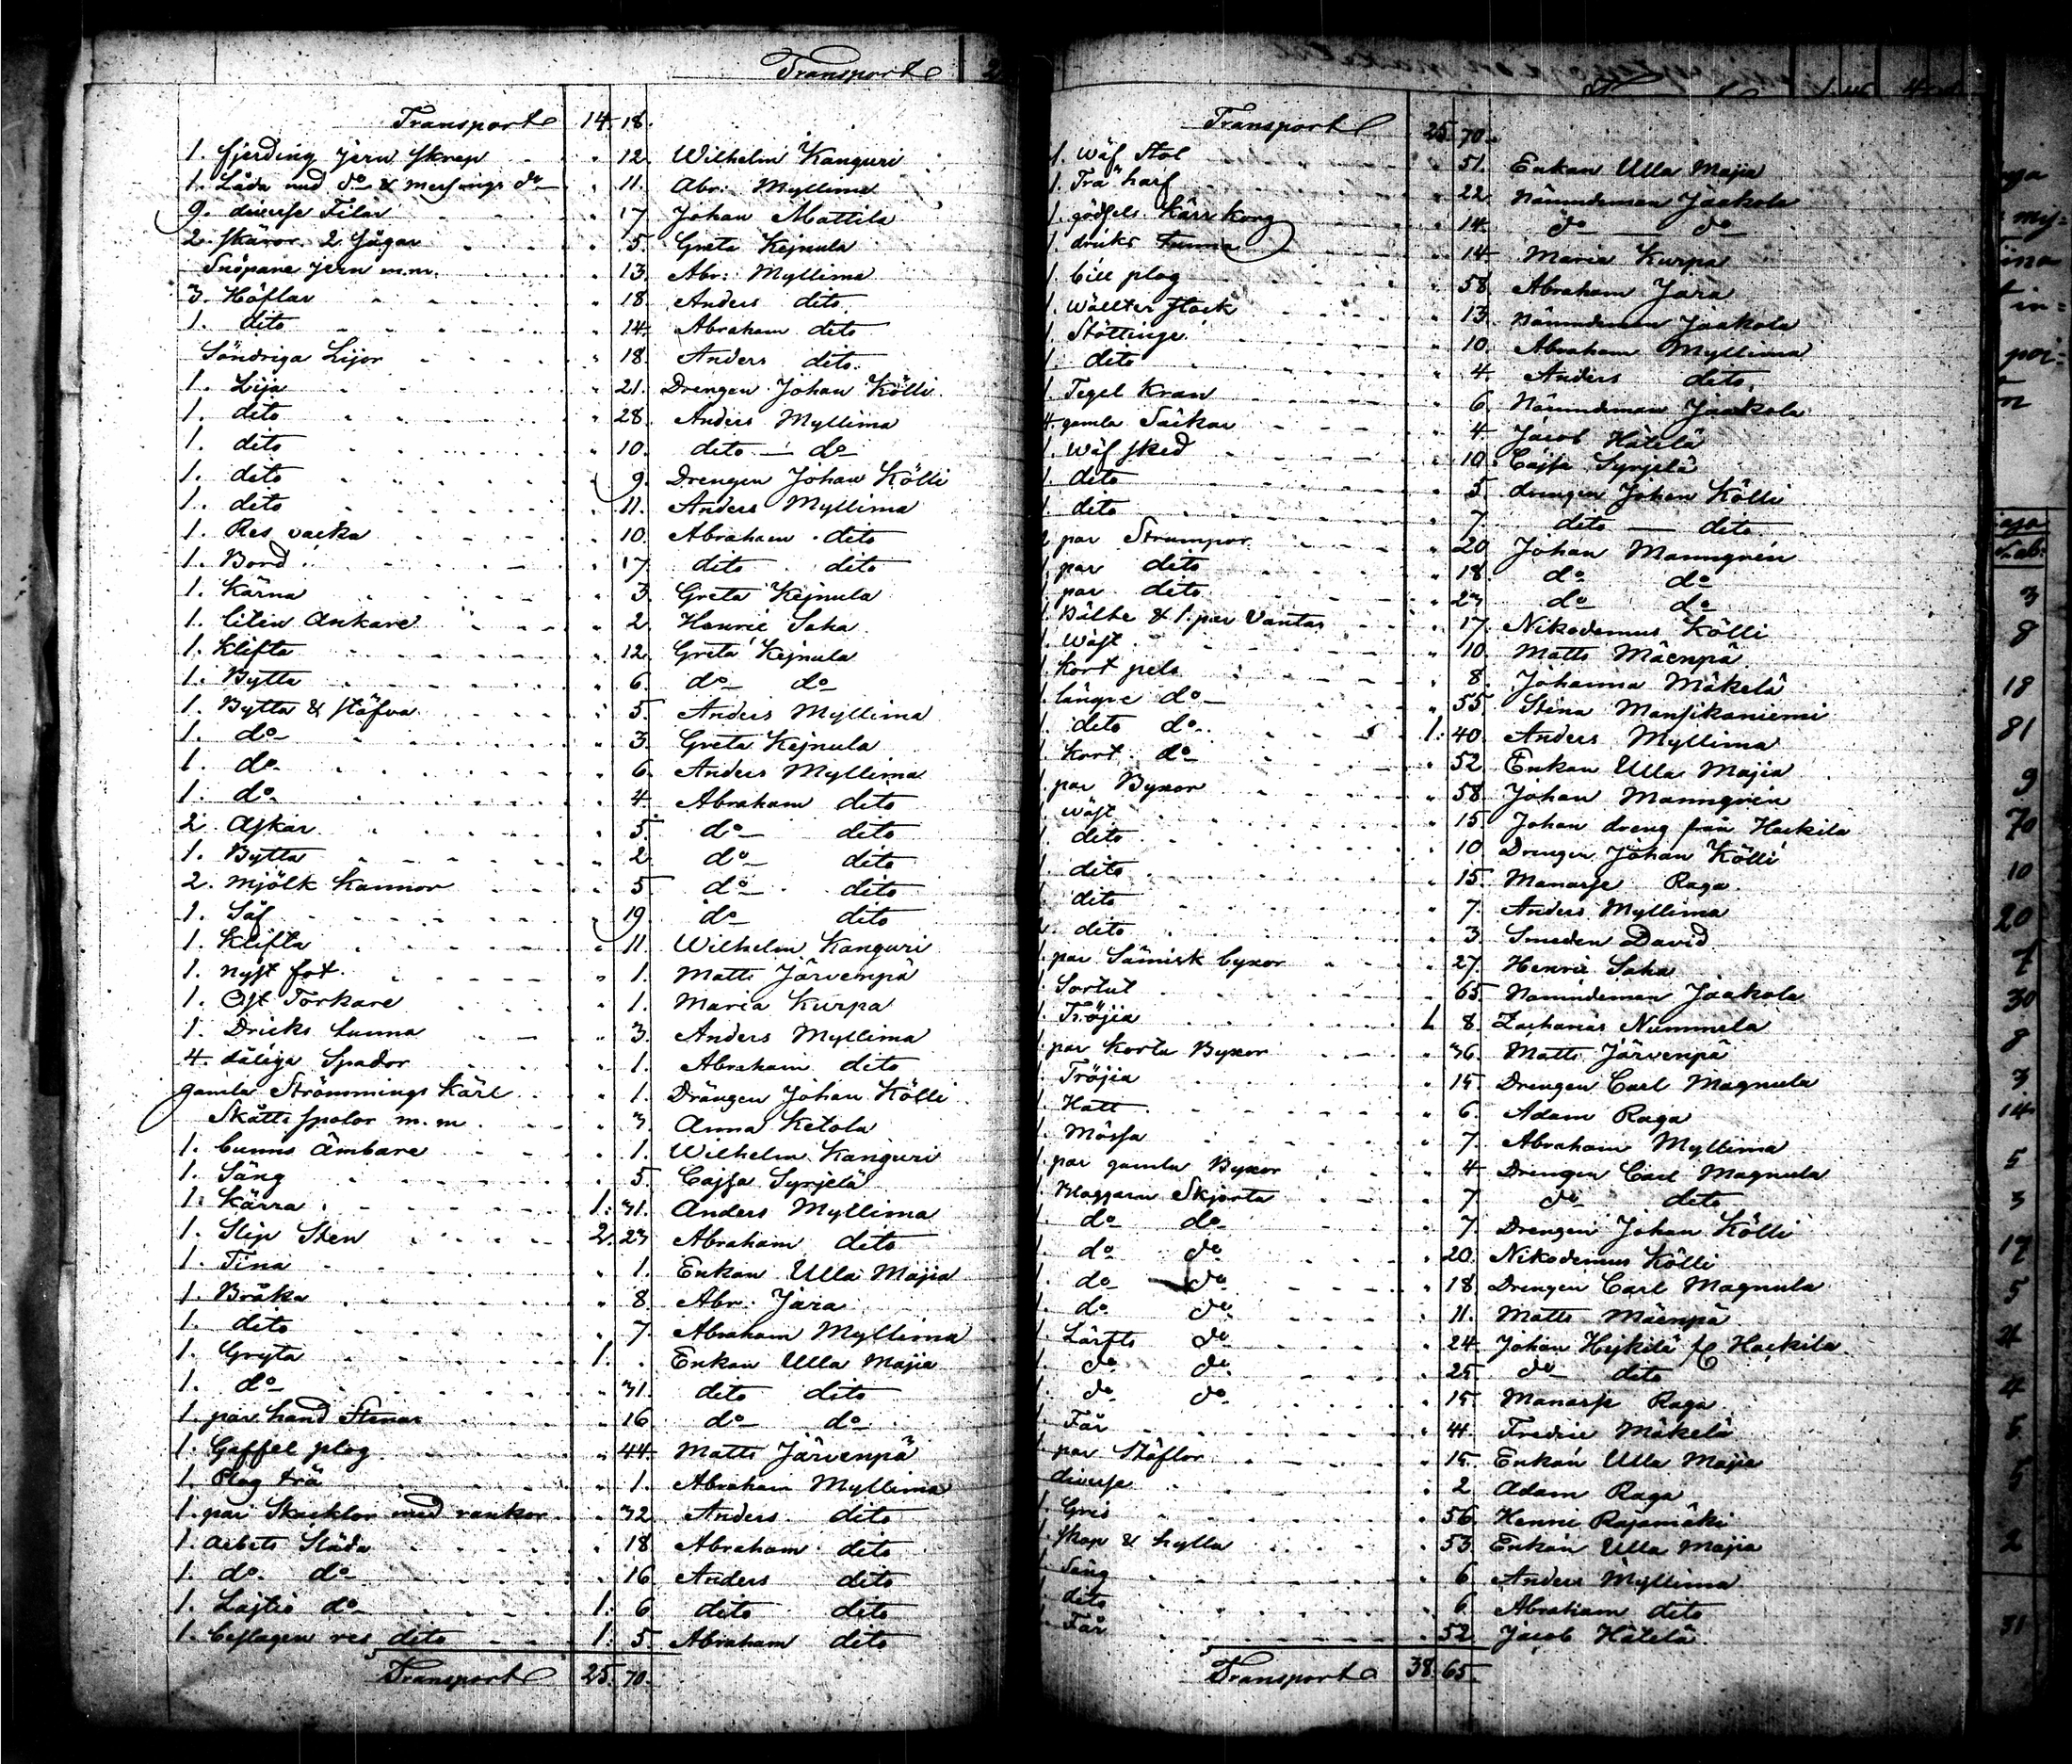 Transport
Transport 14. 18.
1. fjerding jern skrap " 12. Wilhelm Kanguri
1. Låda med do & messings do " 11. Abr: Myllimä
9. diverse Filar " 17 Johan Mattila
2 skäror 2 sågar " 5. Greta Kejnula
Snöpare jern m.m. " 13. Abr: Myllimä
3. Höflar " 18. Anders dito
1. dito " 14. Abraham dito
Söndriga Lijor " 18. Anders dito
1. Lija " 21. Drengen Johan Kölli
1. dito " 28. Anders Myllimä
1. dito " 10. dito — do
1. dito " 9. Drengen Johan Kölli
1. dito " 11. Anders Myllimä
1. Res vacka " 10. Abraham dito
1. Bord " 17 dito dito
1. Kärna " 3. Greta Kejnula
1. liten Ankare " 2. Henric Saha
1. Klifta " 12. Greta Kejnula
1. Bytta " 6. do do
1. Bytta & stäfva " 5. Anders Myllimä
1. do " 3. Greta Kejnula
1. do " 6. Anders Myllimä
1. do " 4. Abraham dito
2 Askar " 5. do dito
1. Bytta " 2 do dito
2. mjölk Kannor " 5. do dito
1. Såf " 19. do dito
1. Klifta " 11. Wilhelm Kanguri
1. nyst fot " 1. Matts Järvenpä
1. Ost Torkare " 1. Maria Kurpa
1. Dricks tunna " 3. Anders Myllimä
4. dåliga Spador " 1. Abraham dito
gamla Strömmings Kärl " 1. Drängen Johan Kölli
Skåtts spolar m.m. " 3. Anna Ketola
1. bunns Ämbare " 1. Wilhelm Kanguri
1. Säng " 5. Cajsa Syrjelä
1. Kärra 1: 31. Anders Myllimä
1. Slip Sten 2. 23 Abraham dito
1. Tina " 1. Enkan Ulla Majia
1. Bråka " 8. Abr: Jara
1. dito " 7. Abraham Myllimä
1. Gryta 1. . Enkan Ulla Majia
1. do " 31. dito dito
1. par hand Stenar " 16 do do
1. Gaffel plog " 44. Matts Järvenpä
1. Plog trä " 1. Abraham Myllimä
1. par Skacklor med rankor " 32 Anders dito
1. arbets Släda " 18 Abraham dito
1. do do " 16 Anders dito
1. Lastis do 1: 6 dito dito
1. beslagen res dito 1: 5. Abraham dito
Transport 25. 70.
Transport 25. 70.
1. Wäf Stol " 51. Enkan Ulla Majia
1. Trä harf " 22 Nämndeman Jaakola
1. gödsels Kärr Korg " 14. do do
1. dricks Tunna " 14. Maria Kurpa
1. bill plog " 58. Abraham Jara
1. Wällter stock " 13. Nämndeman Jaakola
1. Stöttinge " 10. Abraham Myllimä
1. dito " 4. Anders dito
1. Tegel Kran " 6 Nämndeman Jaakola
4. gamla Säckar " 4. Jacob Hätelä
1. Wäf sked " 10. Cajsa Syrjelä
1. dito " 5. drengen Johan Kölli
1. dito " 7. dito — dito
2 par Strumpor " 20 Johan Manngren
1. par dito " 18. do do
1. par dito " 23 do do
1. Bälte & 1. par Vantar " 17. Nikodemus Kölli
1. Wäst " 10. Matts Mäenpä
1. Kort pels " 8. Johanna Mäkelä
1. längre do " 55. Stina Mansikaniemi
1. dito do 1: 40. Anders Myllimä
1. Kort do " 52 Enkan Ulla Majia
1. par Byxor " 58 Johan Manngren
1. Wäst " 15. Johan dreng från Hackila
1. dito " 10 Drengen Johan Kölli
1. dito " 15. Manasse Raga
1. dito " 7. Anders Myllimä
1. dito " 3. Smeden David
1. par Sämisk byxor " 27. Henric Saha
1. Sortut " 65 Nämndeman Jaakola
1. Tröjia 1. 8. Zacharias Nummela
1. par Korta Byxor " 36. Matts Järvenpä
1. Tröjia " 15. Drengen Carl Magnula
1. Hatt " 6. Adam Raga
1. Mössa " 7. Abraham Myllimä
1. par gamla Byxor " 4 Drengen Carl Magnula
1. Blaggarn Skjorta " 7 do dito
1. do do " 7. Drengen Johan Kölli
1. do do " 20. Nikodemus Kölli
1. do do " 18 Drengen Carl Magnula
1. do do " 11. Matts Mäenpä
1. Lärfts do " 24. Johan Hejkilä f Hackila
1. do do " 25 do dito
1. do do " 15. Manasse Raga
1. Får " 44. Fredric Mäkelä
1. par Stöflor " 15. Enkan Ulla Majia
diverse " 2 Adam Raga
1. Gris " 56. Henric Rajamäki
1. skap & hylla " 53. Enkan Ulla Majia
1. Säng " 6 Anders Myllimä
1. dito " 6. Abraham dito
1. Får " 52 Jacob Hätelä
Transport 38. 65.
3
8
18
81
9
70
10
20
7
30
8
3
14
5
3
17
5
4
5
5
2
31